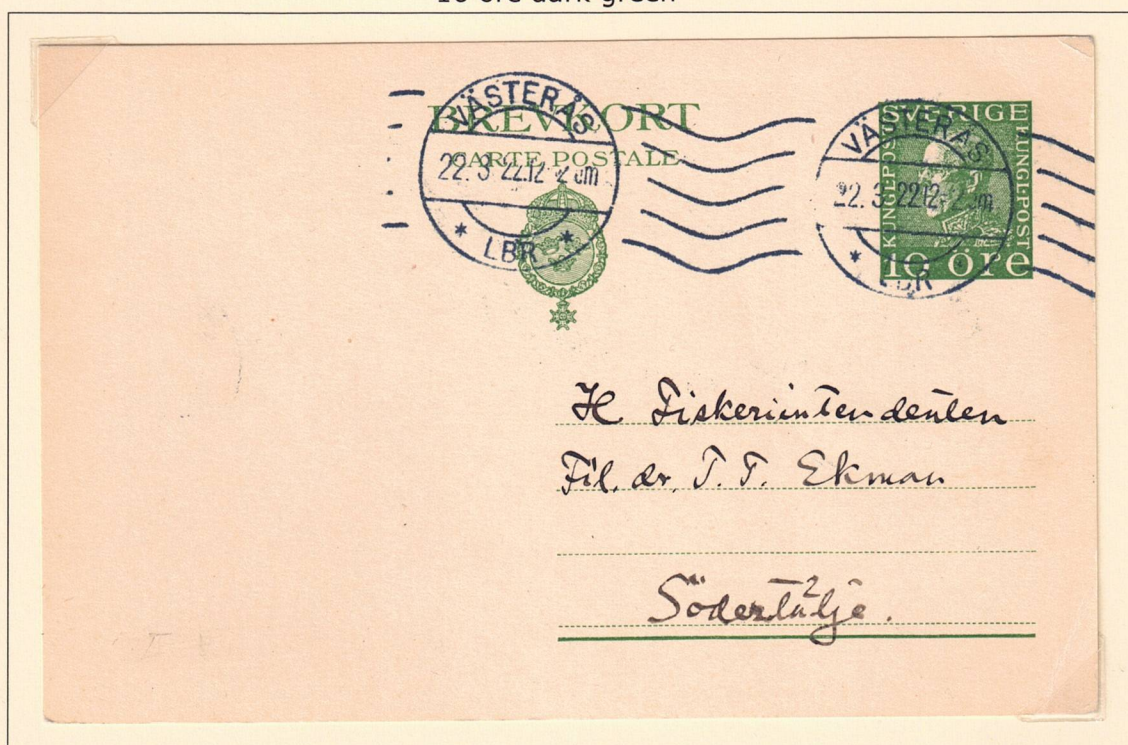 10 öre dark green
BREVKORT
CARTE POSTALE
VÄSTERÅS
22. 3 22.12-2 em
* LBR *
VÄSTERÅS
22. 3 22.12-2 em
* LBR
SVERIGE
KUNGL·POST
KUNGL·POST
10 öre
H Fiskeriintendenten
Fil. dr. T. T. Ekman
Södertälje 2.